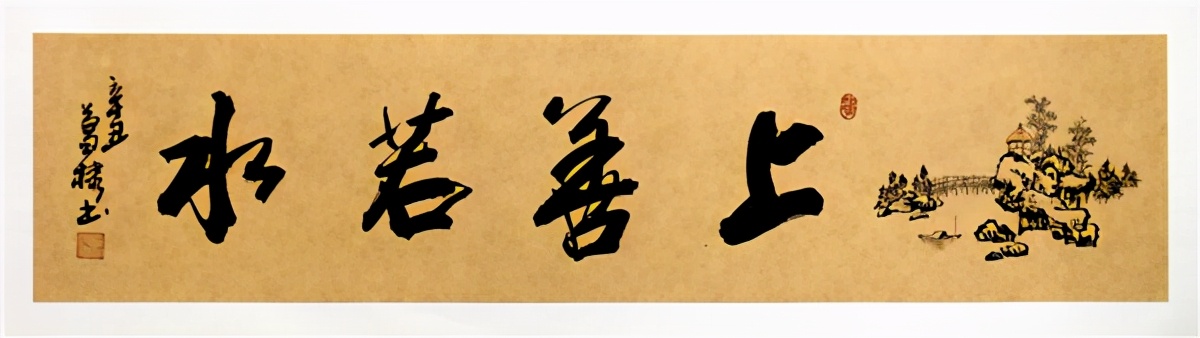 上善若水
辛丑